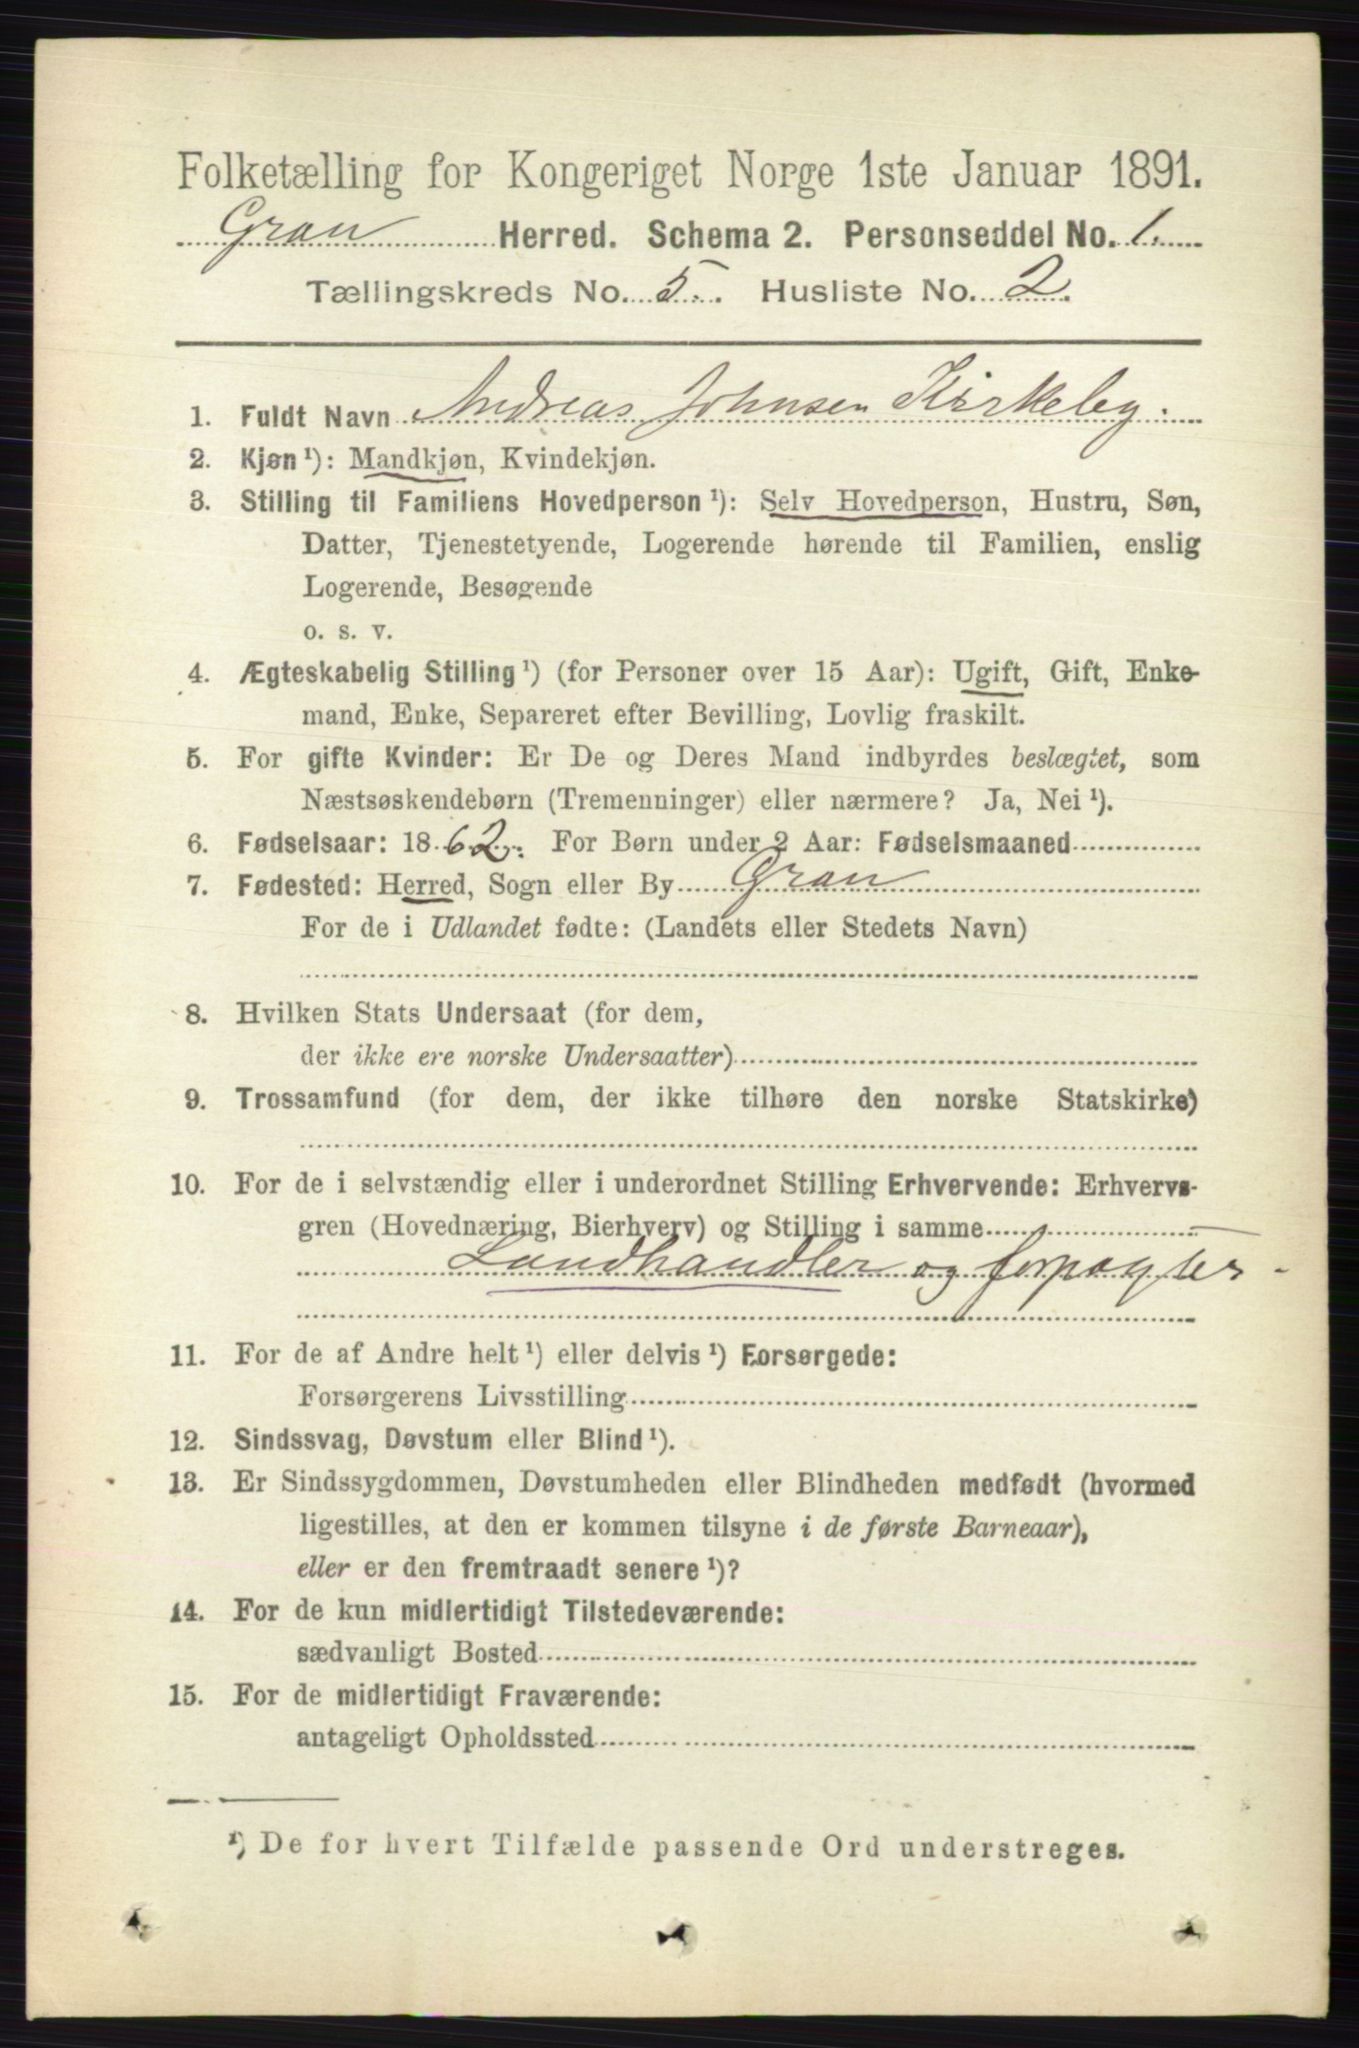 Folketælling for Kongeriget Norge 1ste Januar 1891.
Gran Herred. Schema 2. Personseddel No. 1.
Tællingskreds No. 5. Husliste No. 2.
1. Fuldt Navn Andreas Johnsen Kirkeby.
2. Kjøn ¹): Mandkjøn, Kvindekjøn.
3. Stilling til Familiens Hovedperson ¹): Selv Hovedperson, Hustru, Søn,
Datter, Tjenestetyende, Logerende hørende til Familien, enslig
Logerende, Besøgende
o. s. v.
4. Ægteskabelig Stilling ¹) (for Personer over 15 Aar): Ugift, Gift, Enke-
mand, Enke, Separeret efter Bevilling, Lovlig fraskilt.
5. For gifte Kvinder: Er De og Deres Mand indbyrdes beslægtet, som
Næstsøskendebørn (Tremenninger) eller nærmere? Ja, Nei ¹).
6. Fødselsaar: 1862. For Børn under 2 Aar: Fødselsmaaned
7. Fødested: Herred, Sogn eller By Gran
For de i Udlandet fødte: (Landets eller Stedets Navn)
8. Hvilken Stats Undersaat (for dem,
der ikke ere norske Undersaatter)
9. Trossamfund (for dem, der ikke tilhøre den norske Statskirke)
10. For de i selvstændig eller i underordnet Stilling Erhvervende: Erhvervs-
gren (Hovednæring, Bierhverv) og Stilling i samme
Landhandler og forpagter
11. For de af Andre helt ¹) eller delvis ¹) Forsørgede:
Forsørgerens Livsstilling
12. Sindssvag, Døvstum eller Blind ¹).
13. Er Sindssygdommen, Døvstumheden eller Blindheden medfødt (hvormed
ligestilles, at den er kommen tilsyne i de første Barneaar),
eller er den fremtraadt senere ¹)?
14. For de kun midlertidigt Tilstedeværende:
sædvanligt Bosted
15. For de midlertidigt Fraværende:
antageligt Opholdssted
¹) De for hvert Tilfælde passende Ord understreges.